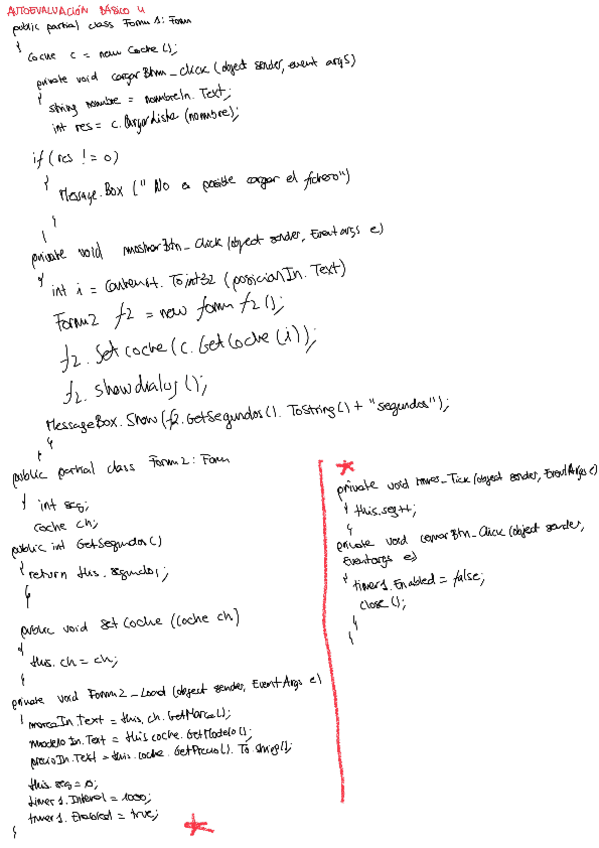 AUTOEVALUACIÓN BÁSICO 4
public partial class Form1: Form
{
Coche c = new Coche();
private void cargarBtnn_click (object sender, event args)
{
string nombre = nombreIn.Text;
int res = c.CargarLista (nombre);
if (res != 0)
{
Message.Box ("No es posible cargar el fichero")
}
}
private void mostrarBtn_Click (object sender, Event args e)
{
int i = Convert.ToInt32 (posicionIn.Text)
Form2 f2 = new form f2();
f2.Set coche (c.GetCoche (i));
f2.showdialog ();
MessageBox.Show (f2.GetSegundos().ToString() + "segundos");
}
}
public partial class Form2: Form
{
int seg;
coche ch;
public int GetSegundos()
{
return this.segundos;
}
public void set Coche (Coche ch)
{
this.ch = ch;
}
private void Form2_Load (object sender, EventArgs e)
{
marcaIn.Text = this.ch.GetMarca();
modelo In.Text = this coche.GetModelo();
precioIn.Text = this.coche.GetPrecio().To String();
this.seg = 0;
timer1.Interval = 1000;
timer1.Enabled = true;
}
private void timer_Tick (object sender, EventArgs e)
{
this.seg++;
}
private void cerrarBtn_Click (object sender,
Eventargs e)
{
timer1.Enabled = false;
close ();
}
}